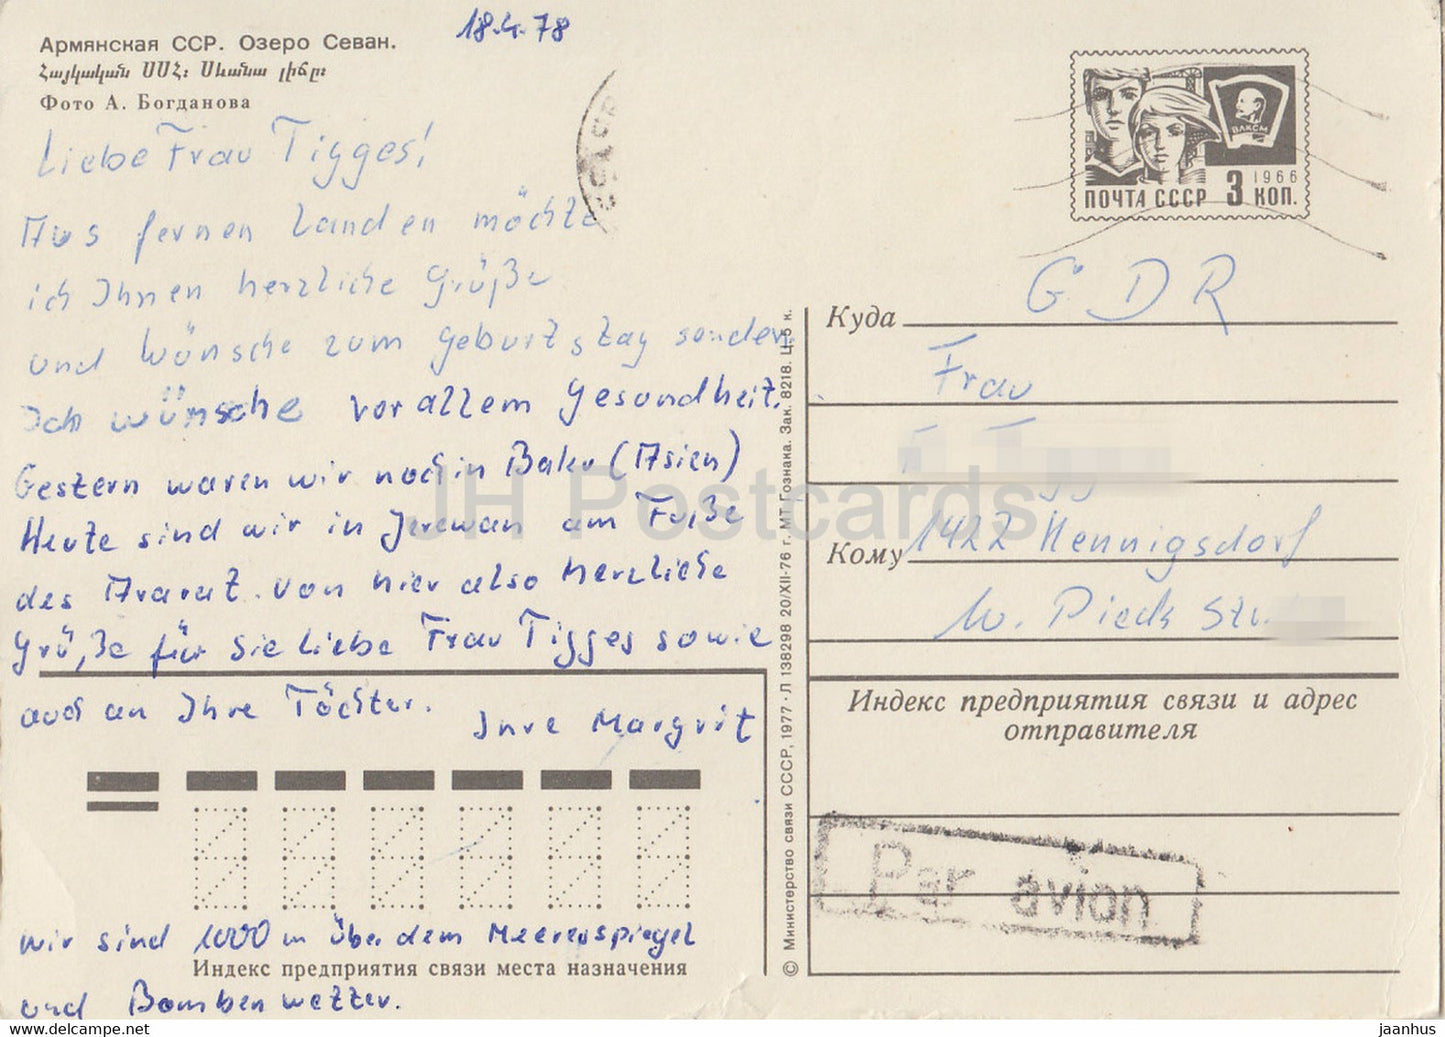 18.4.78
Армянская ССР. Озеро Севан.
Հայկական ՍՍՀ։ Սևանա լիճը։
Фото А. Богданова
Liebe Frau Tigges!
Aus fernen Landen möchte
ich Ihnen herzliche Grüße
und Wünsche zum Geburtstag senden.
Ich wünsche vor allem Gesundheit.
Gestern waren wir noch in Baku (Asien)
Heute sind wir in Jerewan am Fuße
des Ararat. Von hier also herzliche
Grüße für Sie liebe Frau Tigges sowie
auch an Ihre Töchter.
Ihre Margrit
wir sind 1000 m über dem Meeresspiegel
Индекс предприятия связи места назначения
und Bombenwetter.
© Министерство связи СССР, 1977 · Л 138298 20/XII-76 г. МТ Гознака. Зак. 8218. Ц. 5 к.
ВЛКСМ
1966
ПОЧТА СССР 3 КОП.
Куда
GDR
Frau
Кому
1422 Hennigsdorf
W. Pieck Str.
Индекс предприятия связи и адрес
отправителя
Par avion
JH Postcards
www.delcampe.net
jaanhus